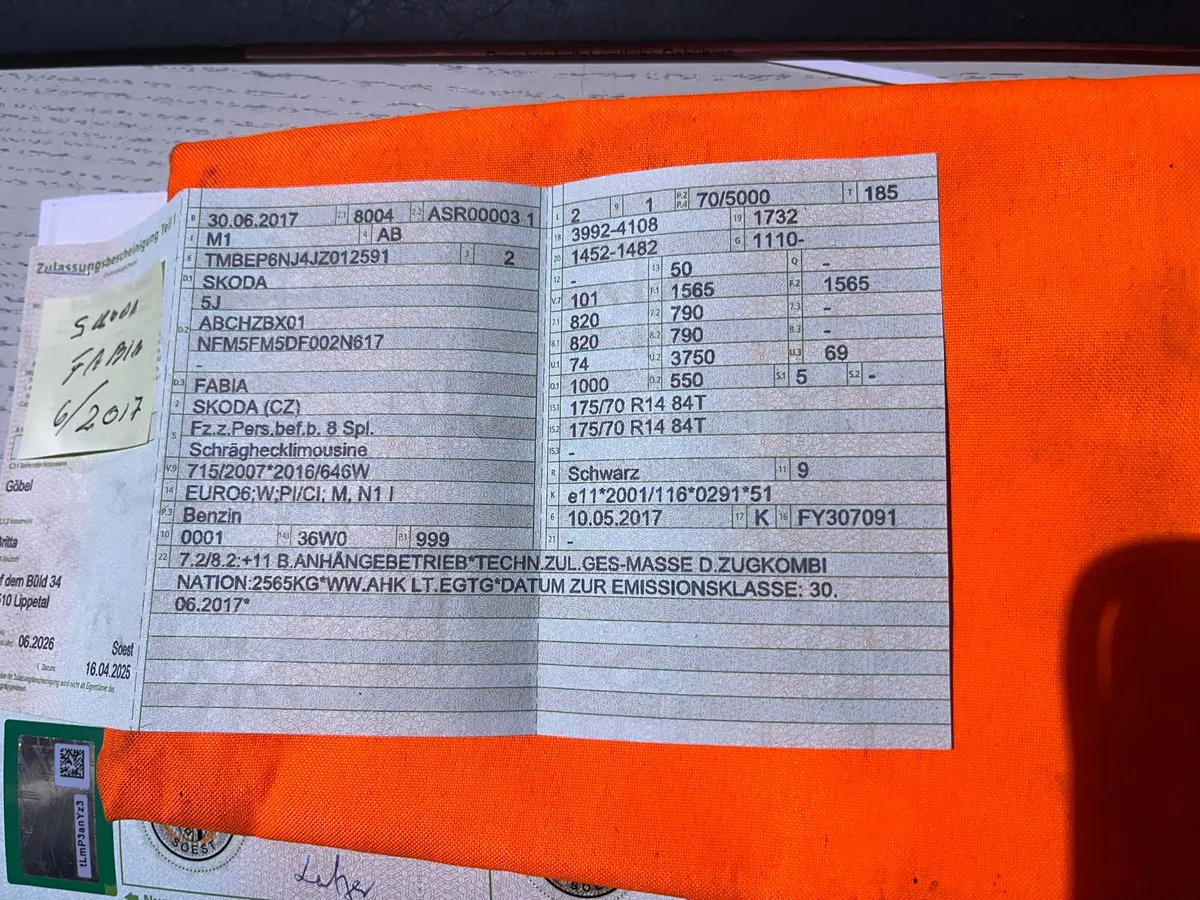 Zulassungsbescheinigung Teil I
SKODA
FABIA
6/2017
Göbel
Britta
f dem Büld 34
510 Lippetal
06.2026
Soest
16.04.2025
B 30.06.2017 2.1 8004 2.2 ASR00003 1
J M1 4 AB
E TMBEP6NJ4JZ012591 3 2
D.1 SKODA
5J
D.2 ABCHZBX01
NFM5FM5DF002N617
-
D.3 FABIA
2 SKODA (CZ)
5 Fz.z.Pers.bef.b. 8 Spl.
Schräghecklimousine
V.9 715/2007*2016/646W
14 EURO6;W;PI/CI; M, N1 I
P.3 Benzin
10 0001 14.1 36W0 P.1 999
L 2 9 1 P.2 P.4 70/5000 T 185
18 3992-4108 19 1732
20 1452-1482 G 1110-
12 - 13 50 Q -
V.7 101 F.1 1565 F.2 1565
7.1 820 7.2 790 7.3 -
8.1 820 8.2 790 8.3 -
U.1 74 U.2 3750 U.3 69
O.1 1000 O.2 550 S.1 5 S.2 -
15.1 175/70 R14 84T
15.2 175/70 R14 84T
15.3 -
R Schwarz 11 9
K e11*2001/116*0291*51
6 10.05.2017 17 K 16 FY307091
21 -
22 7.2/8.2:+11 B.ANHÄNGEBETRIEB*TECHN.ZUL.GES-MASSE D.ZUGKOMBI
NATION:2565KG*WW.AHK LT.EGTG*DATUM ZUR EMISSIONSKLASSE: 30.
06.2017*
tLmP3anYz3
SOEST